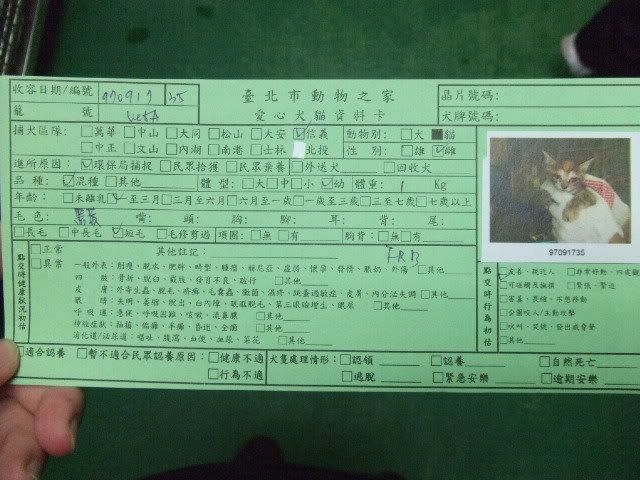 收容日期/編號 970917 35 臺北市動物之家 晶片號碼:
籠 號 愛心犬貓資料卡 犬牌號碼:
捕犬區隊: □萬華 □中山 □大同 □松山 □大安 ☑信義 動物別: □犬 ■貓
□中正 □文山 □內湖 □南港 □士林 □北投 性 別: □雄 ☑雌
進所原因: ☑環保局捕捉 □民眾拾獲 □民眾棄養 □外送犬 □回收犬
品種: ☑混種 □其他 體 型: □大□中□小☑幼 體重: 1 Kg
年齡: □未離乳 ☑至三月 □三月至六月 □六月至一歲 □一歲至三歲 □三至七歲 □七歲以上
毛色: 嘴: 頭: 胸: 腳: 耳: 背: 尾:
□長毛 □中長毛 ☑短毛 □毛修剪過 項圈: □無 □有 胸背: □無 □有
點交時健康狀況初估
□正常 其他註記:
□異常 一般外表: 削瘦、脫水、肥胖、畸型、腫瘤、赫尼亞、虛弱、懷孕、發情、眼奶、外傷 □其他
四 肢: 骨折、脫臼、截肢、發育不良、跛行 □其他
皮 膚: 外寄生蟲、脫毛、疥癬、毛囊蟲、黴菌、濕疹、跳蚤過敏症、皮屑、內分泌失調 □其他
眼 睛: 失明、萎縮、脫出、白內障、眼瞼脫毛、第三眼瞼增生、眼屎 □其他
呼吸道: 急促、呼吸困難、咳嗽、流鼻膿 □其他
神經症狀: 抽搐、偏癱、半癱、昏迷、全癱 □其他
消化道/泌尿道: 嘔吐、腹瀉、血便、血尿、菜花 □其他
97091735
點交時行為初估
☑友善、親近人 □非常好動、四處觀
□可碰觸及撫摸 □緊張、緊迫
□害羞、畏縮、不想移動
□企圖咬人/主動攻擊
□吠叫、哭號、發出威脅聲
□其他
□適合認養 □暫不適合民眾認養原因: □健康不適 犬隻處理情形: □認領 □認養 □自然死亡
□行為不適 □逃脫 □緊急安樂 □逾期安樂